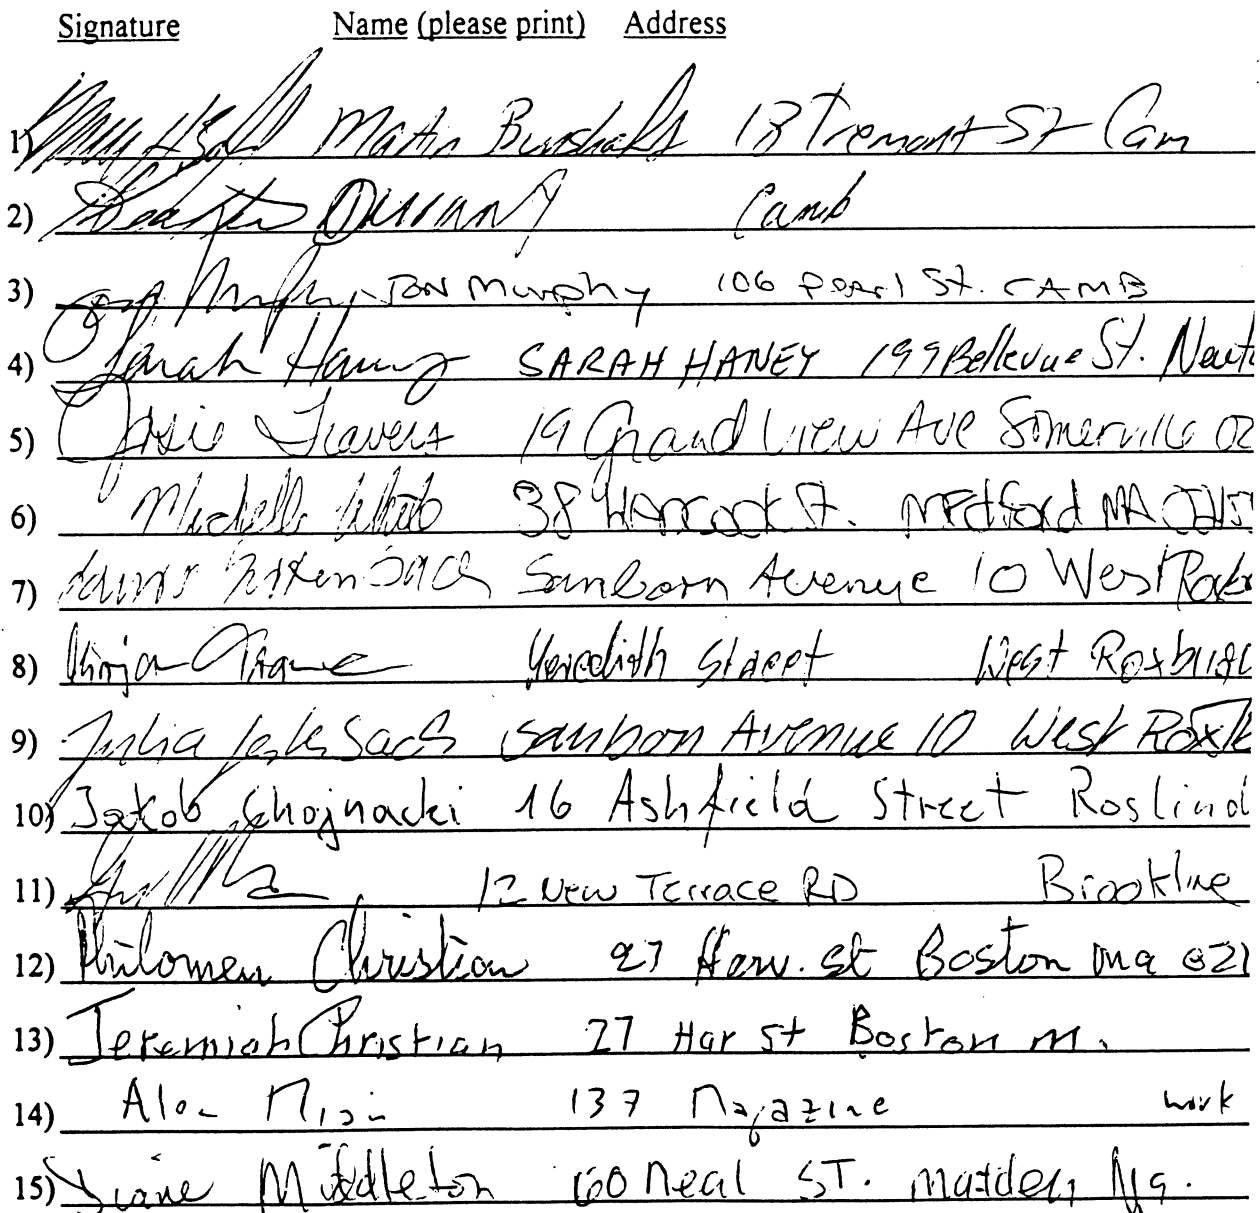 Signature Name (please print) Address
1) Martin 18 Tremont St Cam
2) Camb
3) Murphy Jon Murphy 106 Pearl St. CAMB
4) Sarah Haney SARAH HANEY 199 Bellevue St. Newt
5) Josie Travers 19 Grand View Ave Somerville 02
6) Michelle 38 Hancock St. Medford MA
7) Sanborn Avenue 10 West Roxb
8) Street West Roxbury
9) Julia Sach Sanbon Avenue 10 West Roxb
10) Jakob Chojnacki 16 Ashfield Street Roslind
11) 12 New Terrace RD Brookline
12) Philomen Christian 27 Harv. st Boston Ma 021
13) Jeremiah Christian 27 Har st Boston M.
14) Alon 137 Magazine work
15) Diane Middleton 60 Neal ST. Malden Ma.